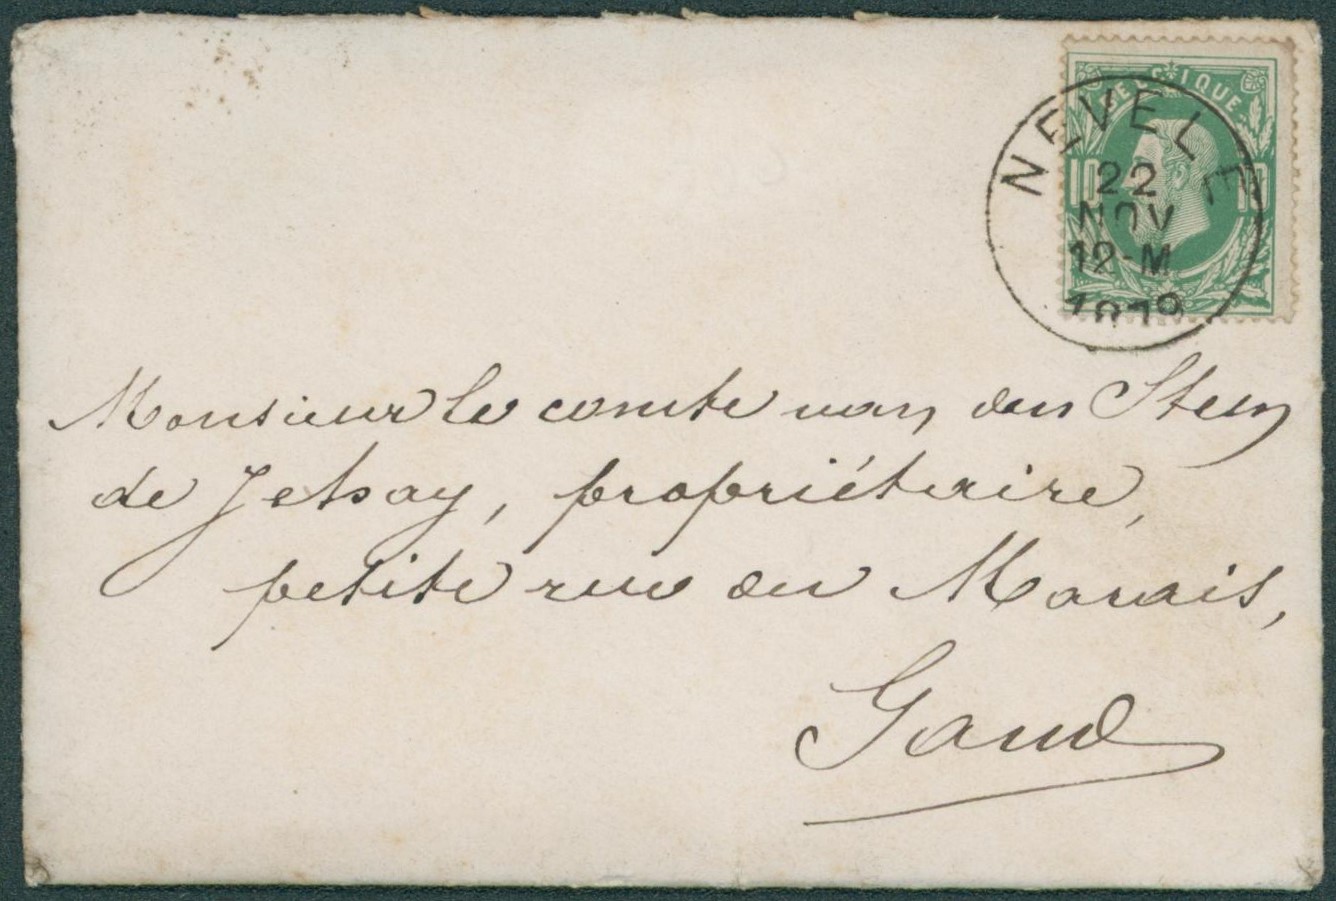 BELGIQUE
10 10
NEVELE
22
NOV
12-M
1879
Monsieur le comte van den Steen
de Jehay, propriétaire,
petite rue du Marais,
Gand